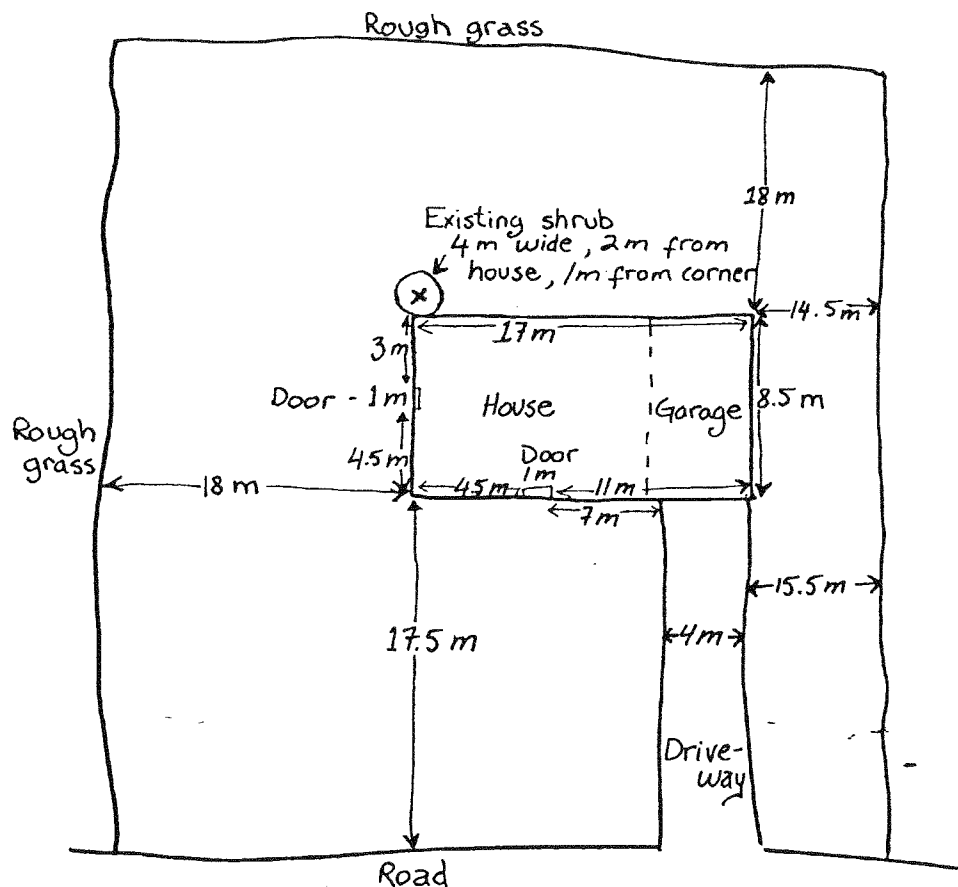 Rough grass
18 m
Existing shrub
4 m wide, 2 m from
house, 1m from corner
x
14.5 m
17 m
3 m
Door - 1 m
House
Garage
8.5 m
Rough
grass
4.5 m
Door
1 m
18 m
4.5 m
11 m
7 m
15.5 m
17.5 m
4 m
Drive-
way
Road